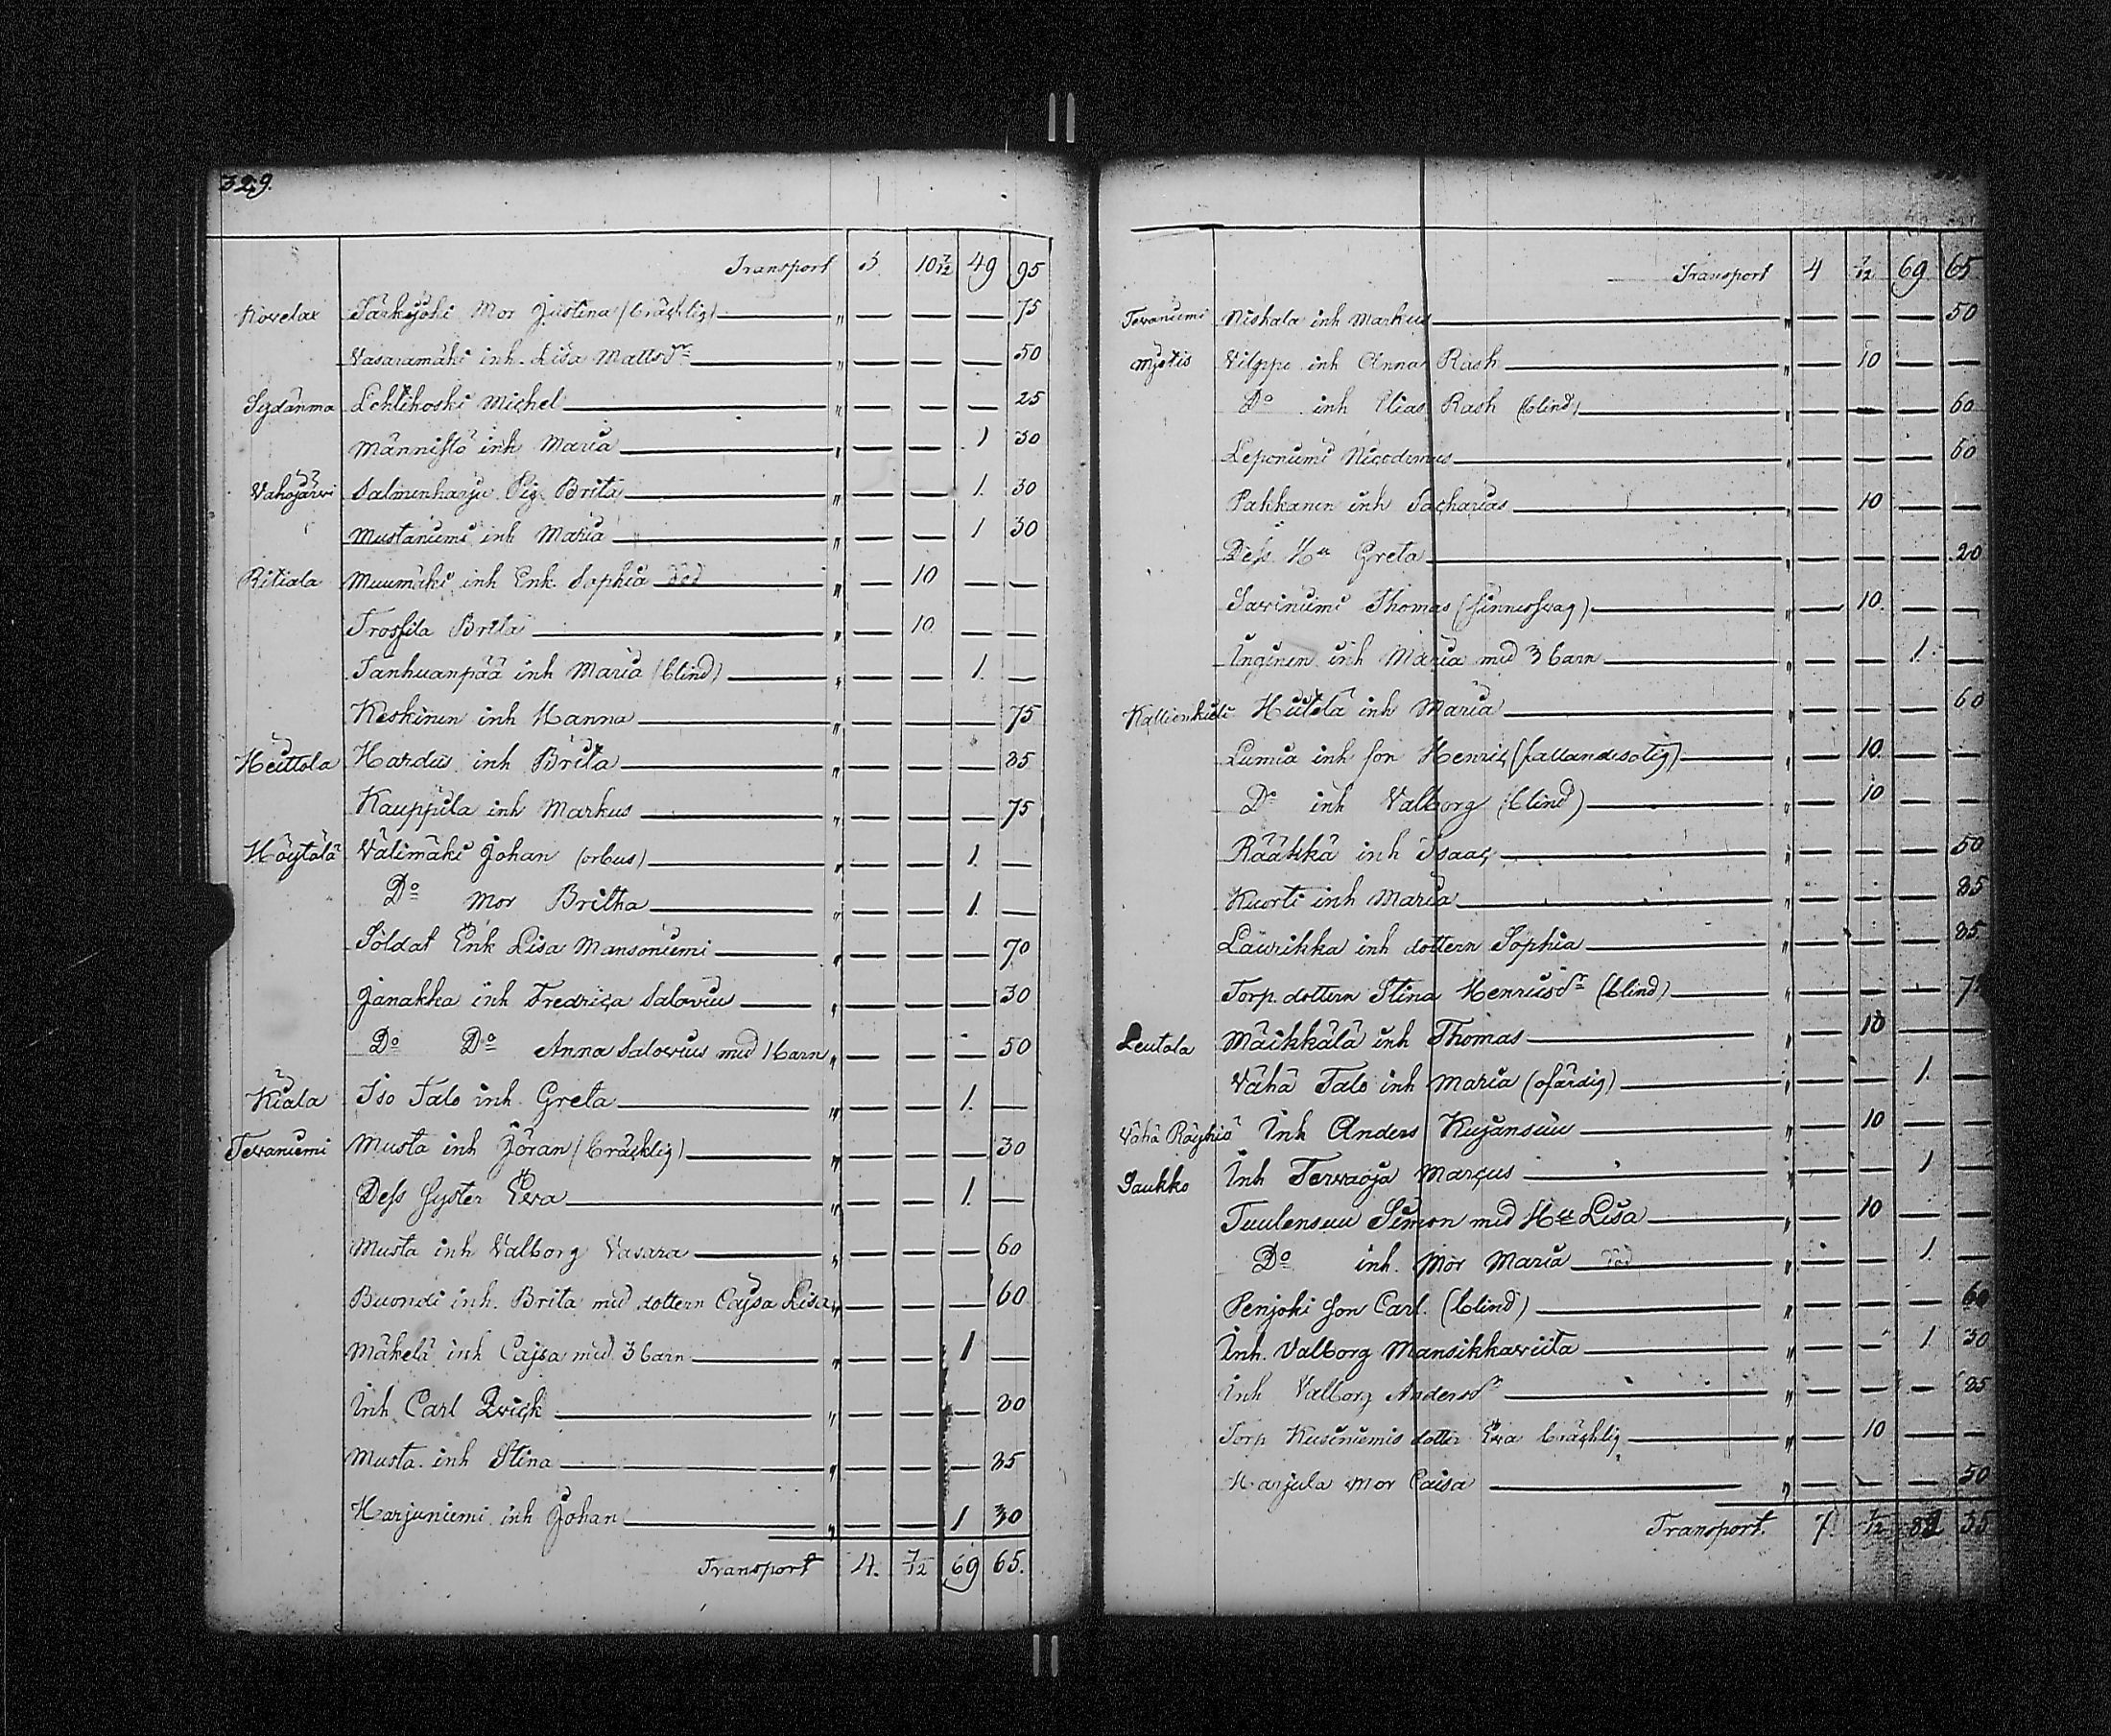 329.
Transport 3. 10 7/12 49 95
Kovelax Särkijoki Mor Justina (bräcklig) " — — — 75
Vasaramäki inh. Lisa Mattsdr " — — — 50
Sydänma Lehtikoski Michel " — — — 25
Männistö inh Maria " — — 1 30
Vahojärvi Salmenharju Pig. Brita " — — 1. 30
Mustaniemi inh Maria " — — 1 30
Ritiala Muumäki inh Enk. Sophia död " — 10 — —
Trossila Brita " — 10 — —
Tanhuanpää inh Maria (blind) " — — 1. —
Keskinen inh Hanna " — — — 75
Heittola Hardus inh Brita " — — — 35
Kauppila inh Markus " — — — 75
Höytölä Välimäki Johan (orbus) " — — 1. —
Do Mor Britha " — — 1. —
Soldat Enk Lisa Mansoniemi " — — — 70
Janakka inh Fredrica Salovius " — — — 30
Do Do Anna Salovius med 1 barn " — — — 50
Kiala Iso Talo inh. Greta " — — 1. —
Tevaniemi Musta inh Jöran (bräcklig) " — — — 30
Dess syster Ewa " — — 1. —
Musta inh Valborg Vasara " — — — 60
Buondi inh. Brita med dottern Cajsa Lisa " — — — 60
Mäkelä inh Cajsa med 3 barn " — — 1 —
Inh Carl Qvick " — — — 20
Musta inh Stina " — — — 35
Harjuniemi inh Johan " — — 1 30
Transport 4. 7/12 69 65.
Transport 4 7/12 69 65.
Tevaniemi Niskala inh Markus " — — — 50
Myttis Vilppo inh Anna Rask " — 10 — —
Do inh Elias Rask (blind) " — — — 60
Leponiemi Nicodemus " — — — 60
Pakkanen inh Zacharias " — 10 — —
Dess Hu Greta " — — — 20
Saviniemi Thomas (sinnessvag) " — 10. — —
Inginen inh Maria med 3 barn " — — 1. —
Kallionkieli Hietela inh Maria " — — — 60
Lumia inh son Henric (fallandesotig) " — 10. — —
Do inh Valborg (blind) " — 10 — —
Rääkkä inh Isaac " — — — 50
Kuorti inh Maria " — — — 35
Laurikka inh dottern Sophia " — — — 35
Torp. dottern Stina Henricsdr (blind) " — — —
Leutola Mäikkälä inh Thomas " — 10 — —
Vähä Talo inh Maria (ofärdig) " — — 1. —
Vähä Röyhiö Inh Anders Kujansuu " — 10 — —
Saukko Inh Tervaoja Marcus " — — 1 —
Tuulensuu Simon med Hu Lisa " — 10 — —
Do inh. Mor Maria död " — — 1. —
Penjoki son Carl. (blind) " — — — 60
Inh. Valborg Mansikkaviita " — — 1 30
Inh Valborg Andersdr " — — — 35
Torp Kusiniemis dotter Ewa bräcklig " — 10 — —
Harjula Mor Caisa " — — — 50
Transport. 7. 7/12 35